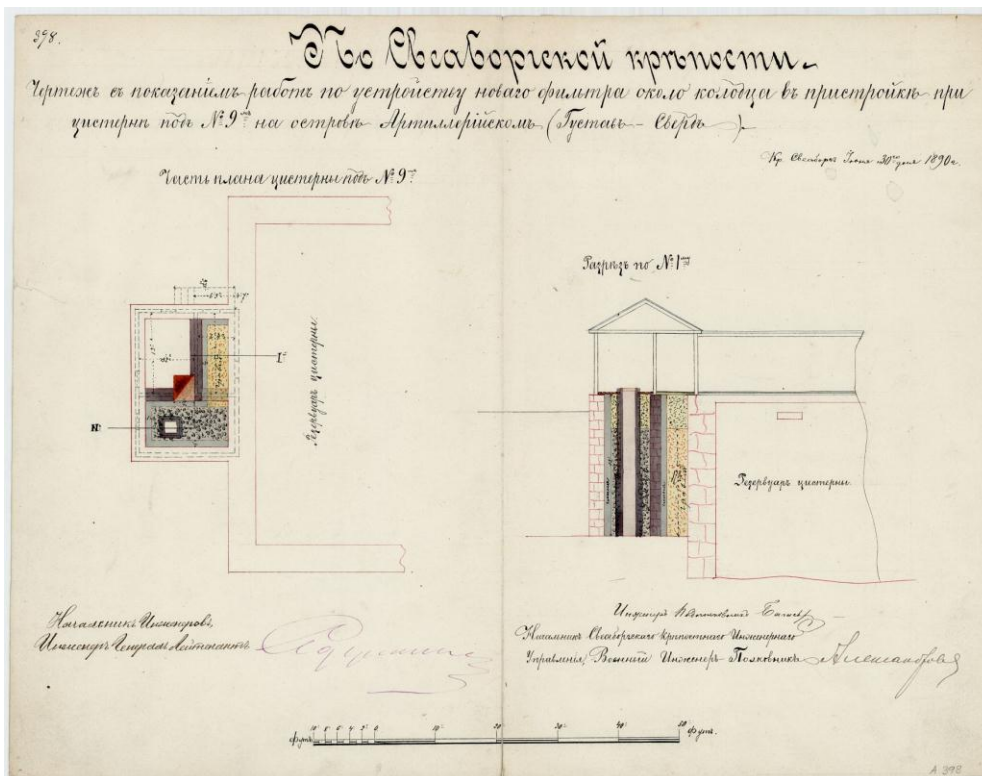 398.
По Свеаборгской крѣпости.
Чертежъ съ показаніемъ работъ по устройству новаго фильтра около колодца въ пристройкѣ при
цистернѣ подъ № 9мъ на островѣ Артиллерійскомъ (Густавъ - Свердъ)
Кр. Свеаборгъ Іюня 30го дня 1890 г.
Часть плана цистерны подъ № 9мъ
Разрѣзъ по № 1му
Резервуаръ цистерны.
Резервуаръ цистерны.
Начальникъ Инженеровъ,
Инженеръ Генералъ Лейтенантъ
Инженеръ
Начальникъ Свеаборгскаго Крѣпостнаго Инженернаго
Управленія, Военный Инженеръ Полковникъ Александровъ
футъ 10 8 6 4 2 0 10 20 30 40 50 футъ.
A 398